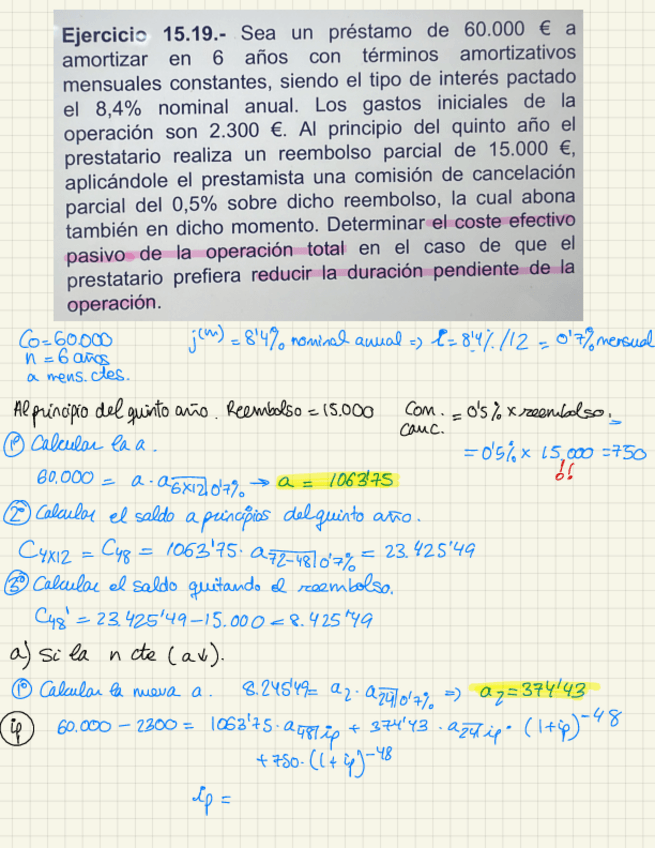 Ejercicio 15.19.- Sea un préstamo de 60.000 € a
amortizar en 6 años con términos amortizativos
mensuales constantes, siendo el tipo de interés pactado
el 8,4% nominal anual. Los gastos iniciales de la
operación son 2.300 €. Al principio del quinto año el
prestatario realiza un reembolso parcial de 15.000 €,
aplicándole el prestamista una comisión de cancelación
parcial del 0,5% sobre dicho reembolso, la cual abona
también en dicho momento. Determinar el coste efectivo
pasivo de la operación total en el caso de que el
prestatario prefiera reducir la duración pendiente de la
operación.
Co=60.000 j(m) = 8'4% nominal anual => i = 8'4% /12 = 0'7% mensual
n = 6 años
a mens. ctes.
Al principio del quinto año. Reembolso = 15.000 Com. canc. = 0'5% x reembolso.
1º Calcular la a. = 0'5% x 15.000 = 750
!!
60.000 = a · a 6x12 0'7% → a = 1063'75
2º Calcular el saldo a principios del quinto año.
C4x12 = C48 = 1063'75 · a 72-48 0'7% = 23.425'49
3º Calcular el saldo quitando el reembolso.
C48' = 23.425'49 - 15.000 = 8.425'49
a) Si la n cte (a↓).
1º Calcular la nueva a. 8.245'49 = a2 · a 24 0'7% => a2 = 374'43
ip 60.000 - 2300 = 1063'75 · a 48 ip + 374'43 · a 24 ip · (1+ip)-48
+ 750 · (1+ip)-48
ip =